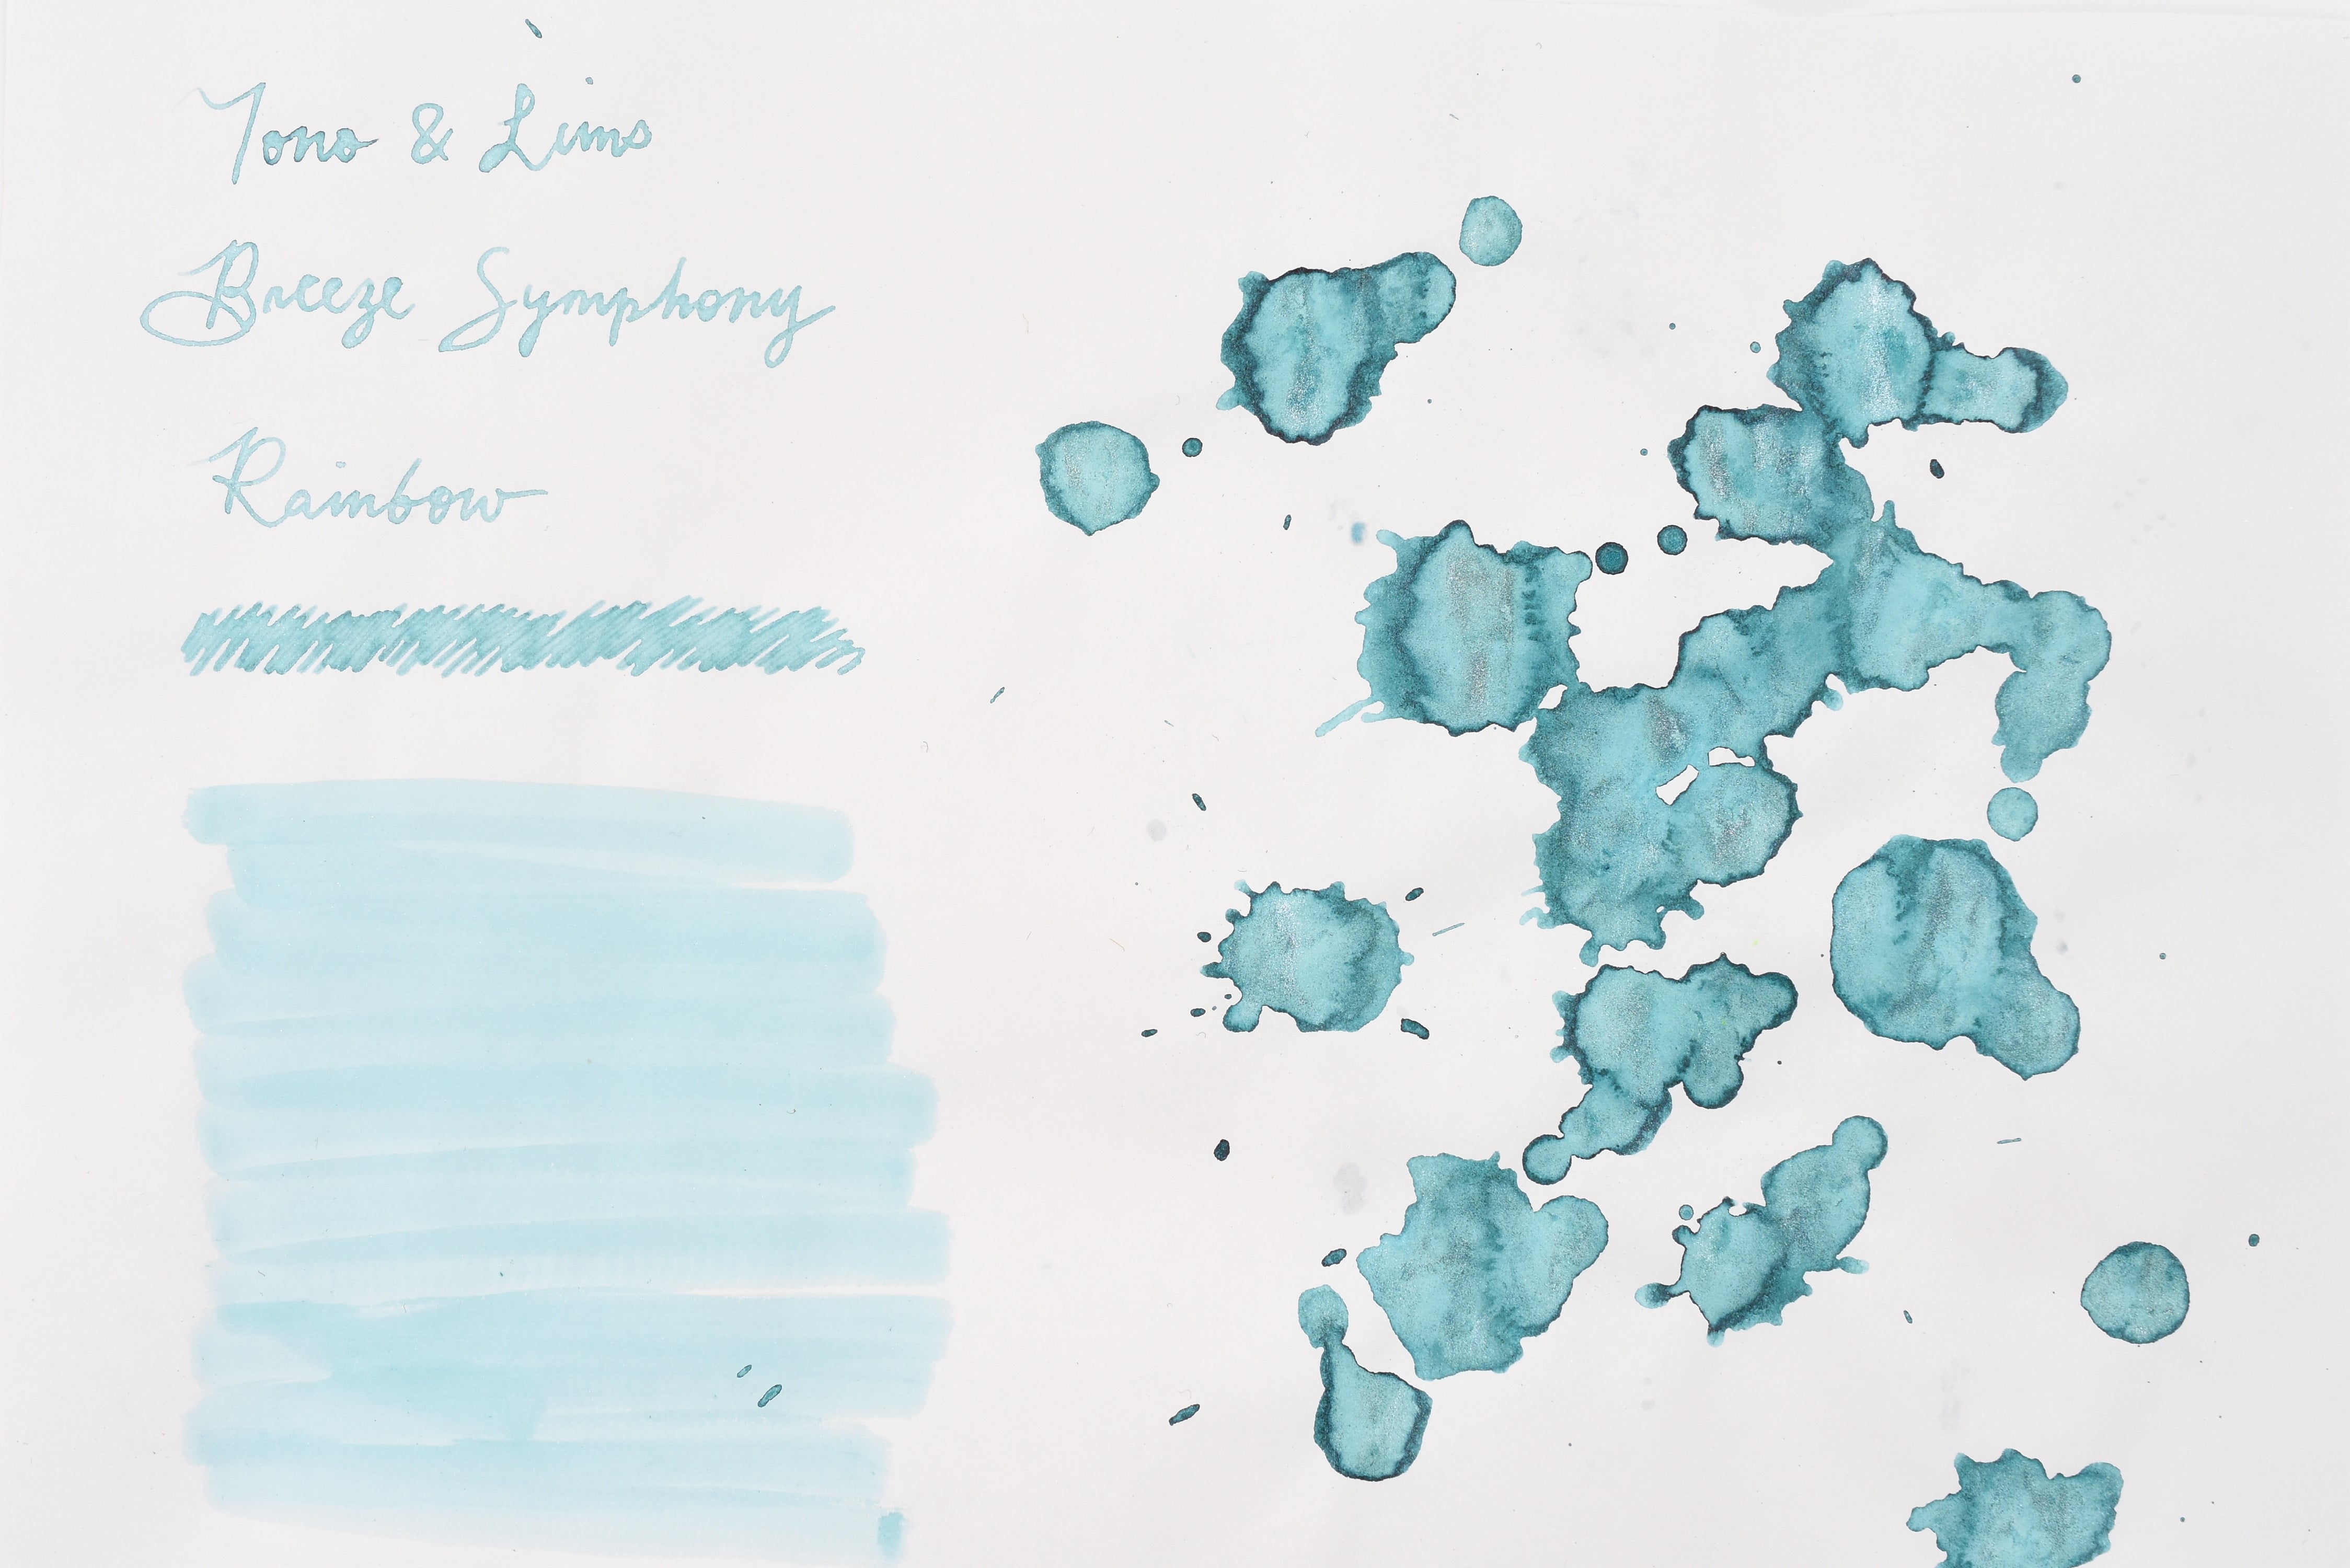 Tono & Lims
Breeze Symphony
Rainbow